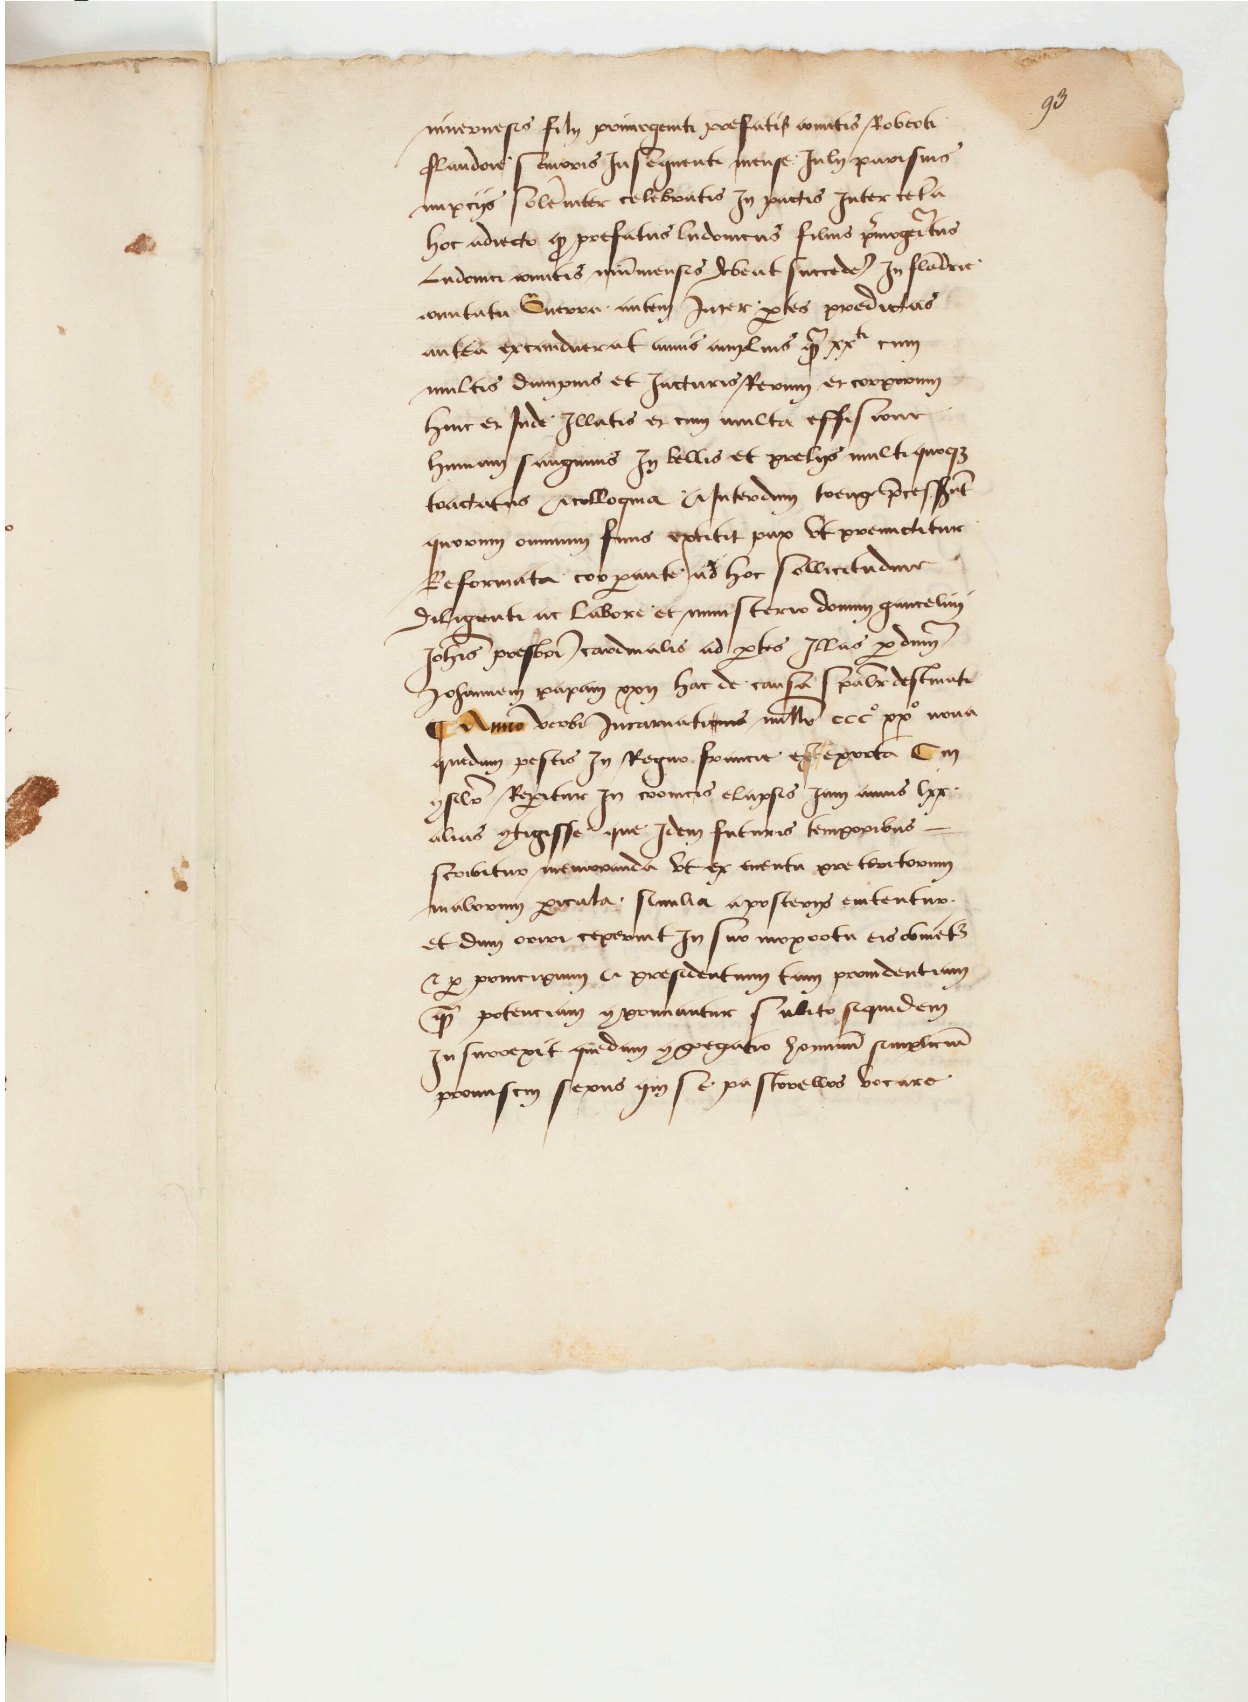 93
nivernesis filij primogeniti prefatis comitis Roberti
flandrie senioris In sequenti mense Iulij parisius
nupcijs solẽniter celebratis In pactis Inter cetã
hoc adiecto ꝙ prefatus ludovicus filius p̃mogẽitus
Ludovici comitis nivernensis debeat succede In flãdrie
comitatu Guerra autem Inter ꝑtes predictas
antea excanduerat annis amplius qᷓ xxti cum
multis dampnis et Iacturis Rerum et corporum
hinc et Inde Illatis et cum multa effusione
humani sanguinis In bellis et prelijs multi quoqꝫ
tractatus et colloquia et Interdum treuge p̃cesserũt
quorum omnium finis extitit pax vt premictitur
Reformata coopante ad hoc sollicitudine
diligenti ac labore et ministerio domini gaucelini
Iohis presbri cardinalis ad ꝑtes Illas ꝑ dnm
Iohannem papam xxij hac de causa spalr destinati
¶ Anno verbi Incarnationis millo cccº xxº nova
quedam pestis In Regno francie est exorta Cui
ꝯsilis Reperitur In cronicis elapsis Iam annis lxx
alias ꝯtigisse que Idem futuris temporibus —
scribitur memoranda vt ex eventu preteritorum
malorum ꝑicula similia a posteris evitentur
et dum oriri ceperint In suo moxortu eis obviet᷒
⁊ ꝑ principum et presidentium tam providentiam
qᷓ potenciam ꝯprimantur Subito siquidem
Insurrexit quedam ꝯgregatio hominũ simpliciũ
promiscui sexus qui se pastorellos vocare